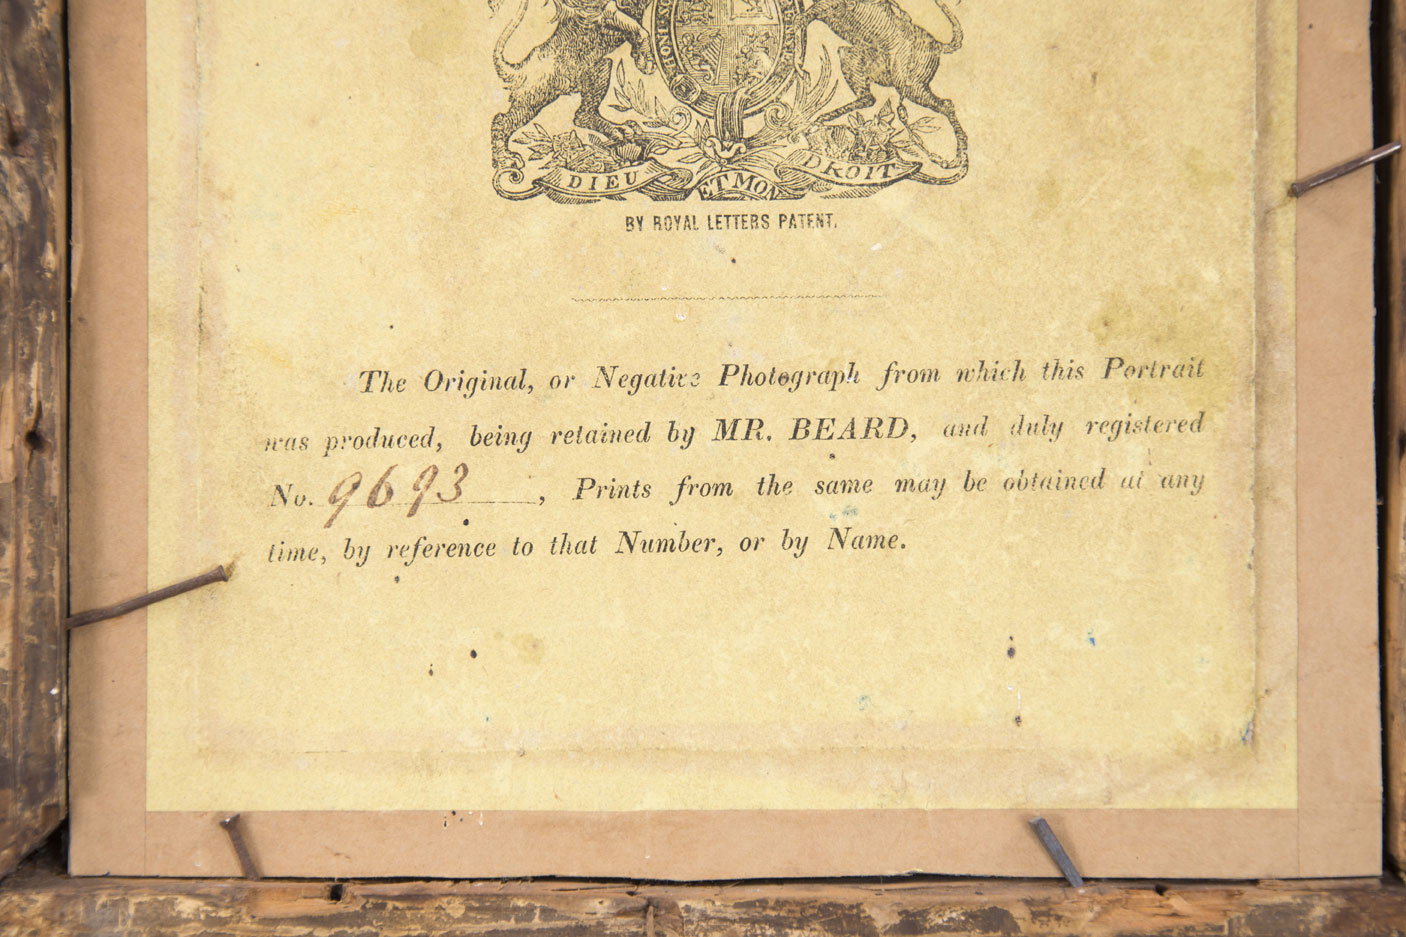 HONI SO
DIEU ET MON DROIT
BY ROYAL LETTERS PATENT.
The Original, or Negative Photograph from which this Portrait
was produced, being retained by MR. BEARD, and duly registered
No. 9693, Prints from the same may be obtained at any
time, by reference to that Number, or by Name.